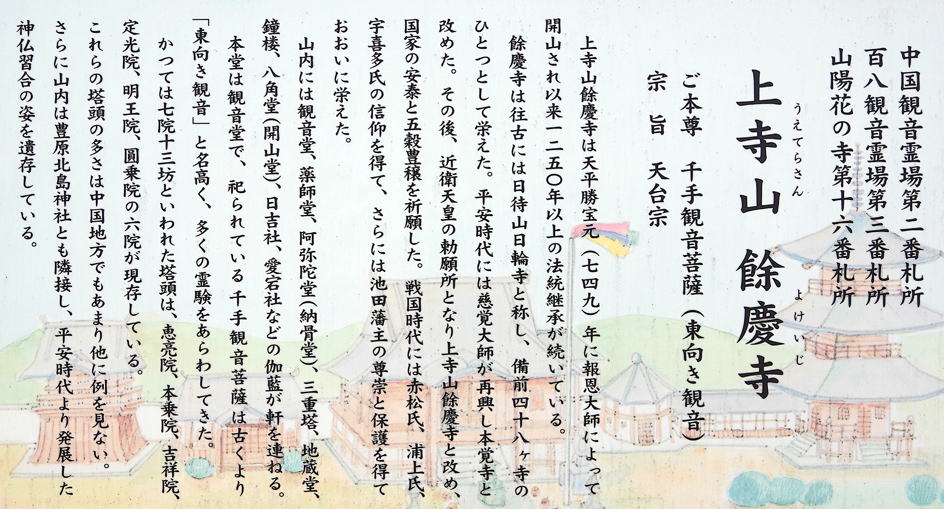 中国観音霊場第二番札所
百八観音霊場第三番札所
山陽花の寺第十六番札所
上寺山 餘慶寺
うえてらさん よけいじ
ご本尊 千手観音菩薩（東向き観音）
宗旨 天台宗
上寺山餘慶寺は天平勝宝元（七四九）年に報恩大師によって
開山され以来一二五〇年以上の法統継承が続いている。
餘慶寺は往古には日待山日輪寺と称し、備前四十八ヶ寺の
ひとつとして栄えた。平安時代には慈覚大師が再興し本覚寺と
改めた。その後、近衛天皇の勅願所となり上寺山餘慶寺と改め、
国家の安泰と五穀豊穣を祈願した。戦国時代には赤松氏、浦上氏、
宇喜多氏の信仰を得て、さらには池田藩主の尊崇と保護を得て
おおいに栄えた。
山内には観音堂、薬師堂、阿弥陀堂(納骨堂)、三重塔、地蔵堂、
鐘楼、八角堂(開山堂)、日吉社、愛宕社などの伽藍が軒を連ねる。
本堂は観音堂で、祀られている千手観音菩薩は古くより
「東向き観音」と名高く、多くの霊験をあらわしてきた。
かつては七院十三坊といわれた塔頭は、恵亮院、本乗院、吉祥院、
定光院、明王院、圓乗院の六院が現存している。
これらの塔頭の多さは中国地方でもあまり他に例を見ない。
さらに山内は豊原北島神社とも隣接し、平安時代より発展した
神仏習合の姿を遺存している。